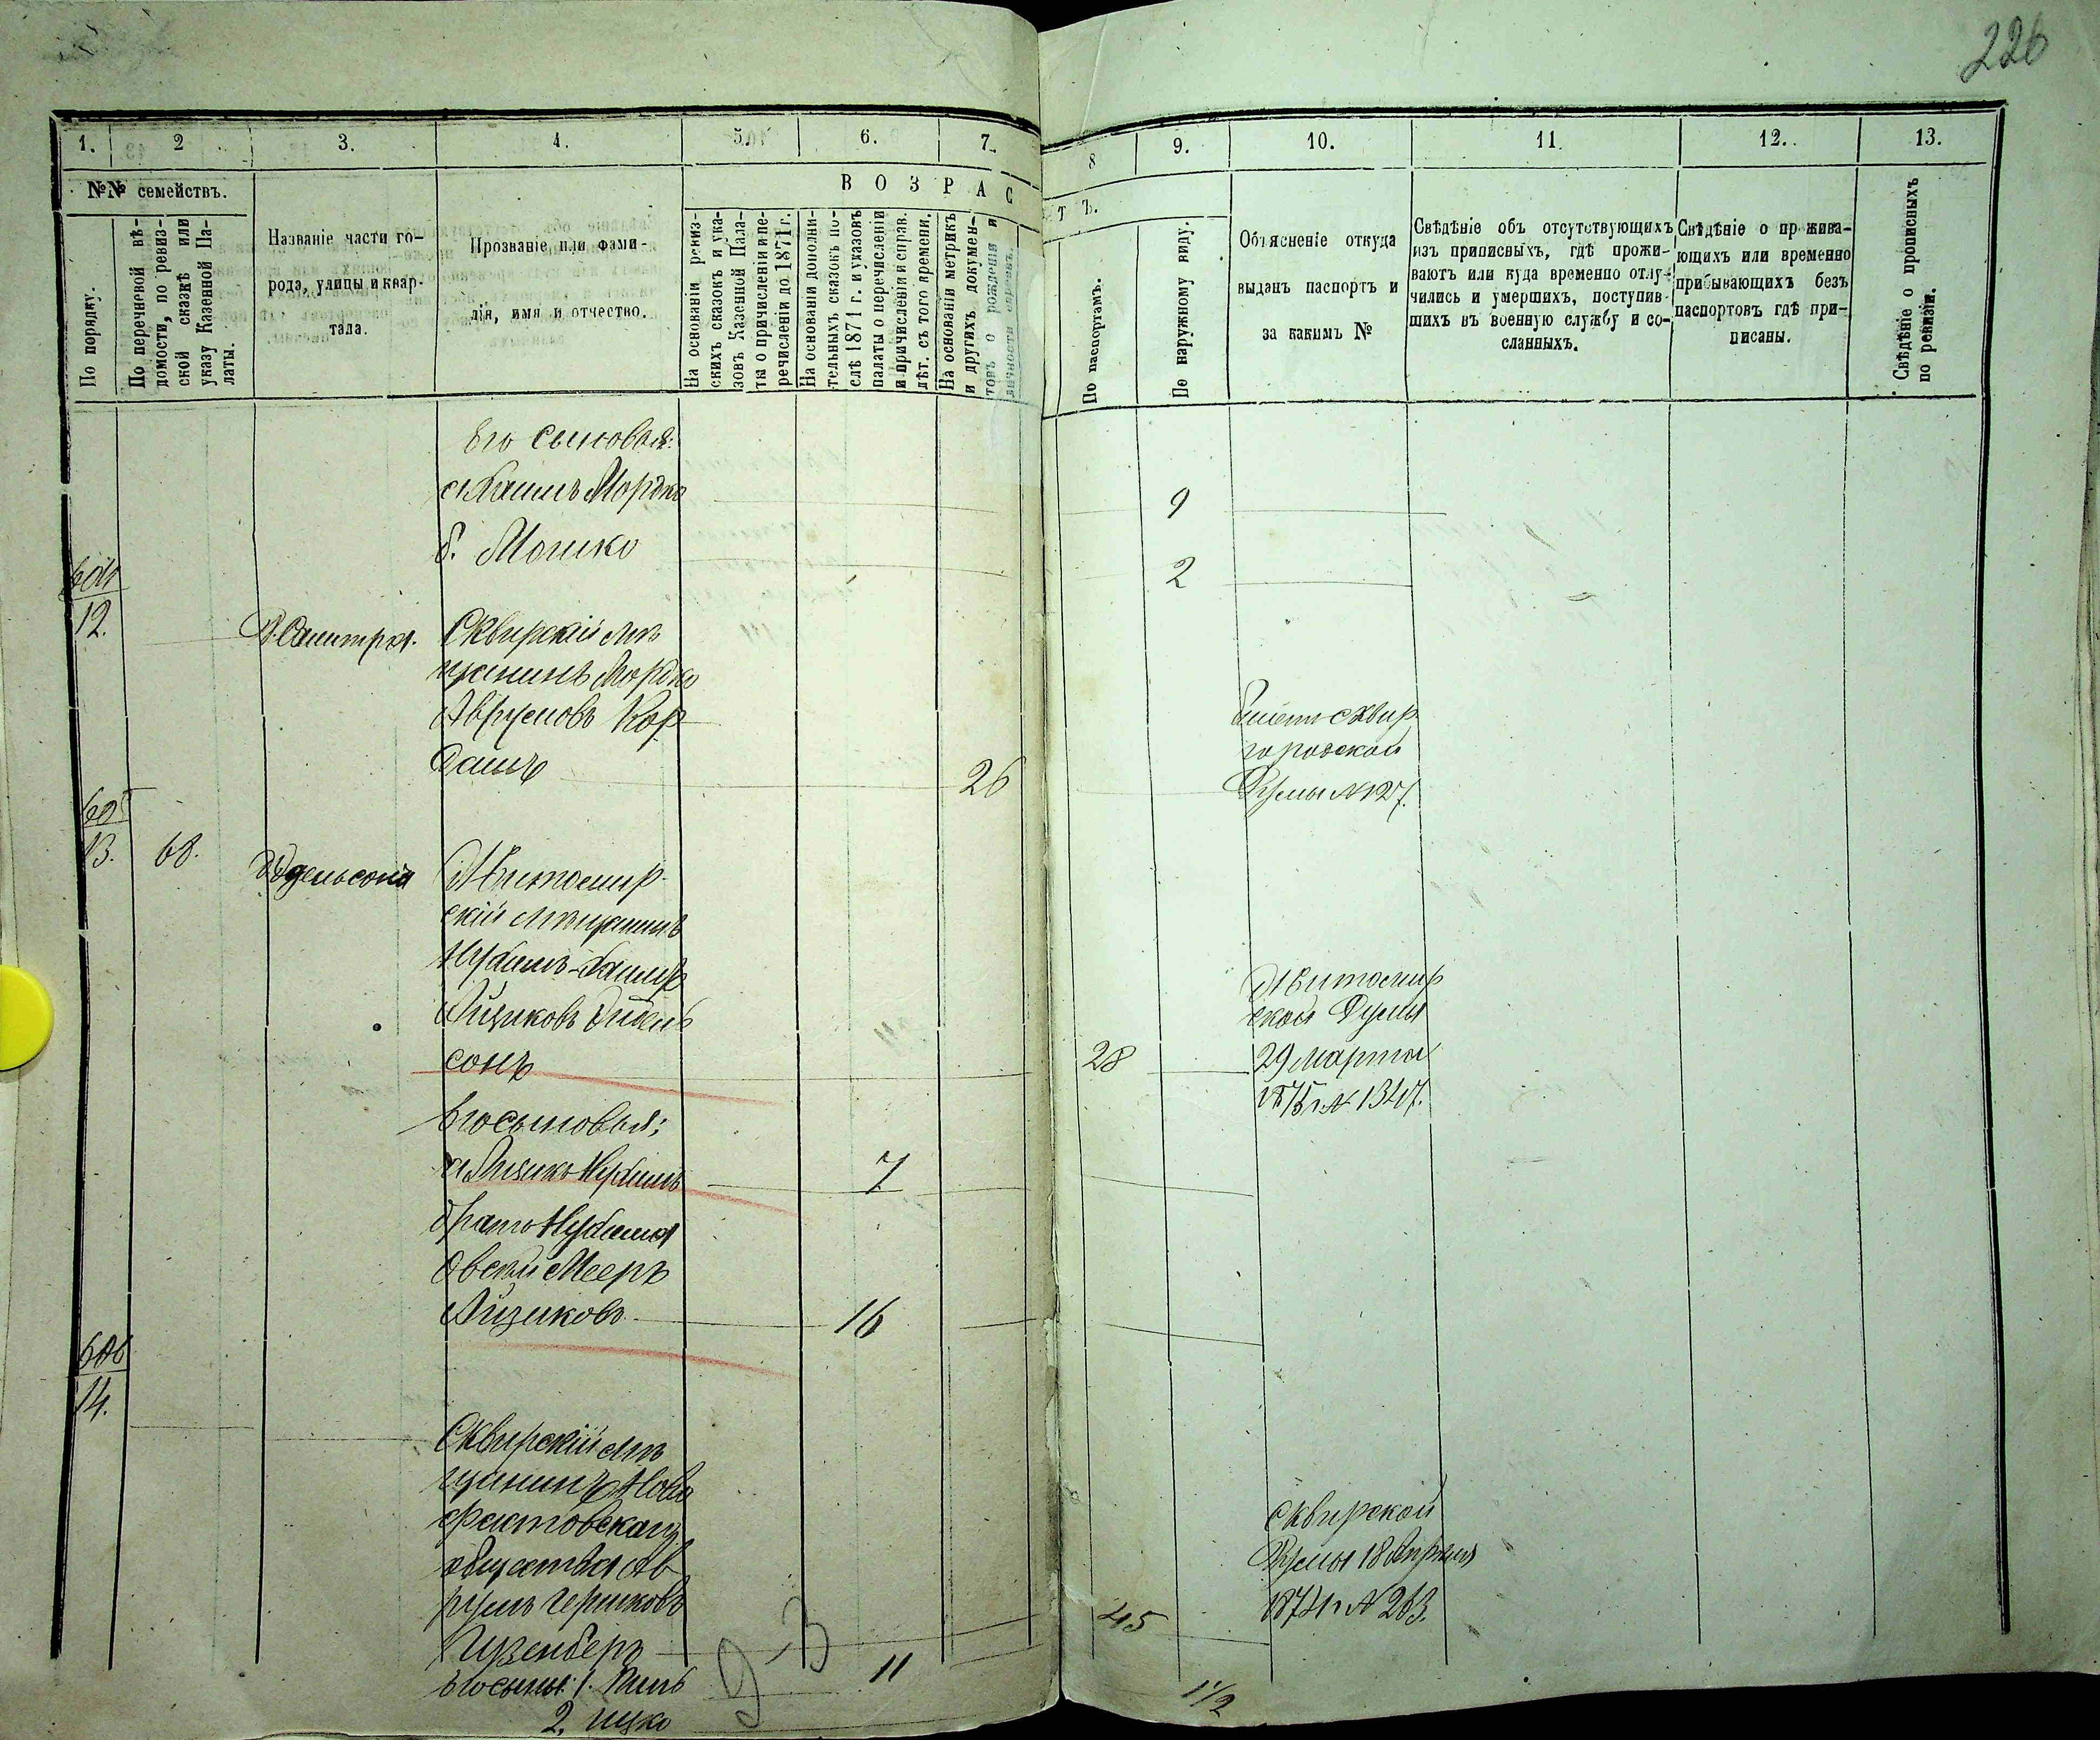 226
1. 2 3. 4. 5. 6. 7. 8 9. 10. 11. 12. 13.
№№ семействъ.
По порядку.
По перечневой вѣ-
домости, по ревиз-
ской сказкѣ или
указу Казенной Па-
латы.
Названіе части го-
рода, улицы и квар-
тала.
Прозваніе или фами-
лія, имя и отчество.
ВОЗРАСТЪ.
На основаніи ревиз-
скихъ сказокъ и ука-
зовъ Казенной Пала-
ты о причисленіи и пе-
речисленіи до 1871 г.
На основаніи дополни-
тельныхъ сказокъ по-
слѣ 1871 г. и указовъ
палаты о перечисленіи
и причисленіи и справ.
лѣт. съ того времени.
На основаніи метрикъ
и другихъ докумен-
товъ о рожденіи и
По паспортамъ.
По наружному виду.
Объясненіе откуда
выданъ паспортъ и
за какимъ №
Свѣдѣніе объ отсутствующихъ
изъ приписныхъ, гдѣ прожи-
ваютъ или куда временно отлу-
чились и умершихъ, поступив-
шихъ въ военную службу и со-
сланныхъ.
Свѣдѣніе о прожива-
ющихъ или временно
прибывающихъ безъ
паспортовъ гдѣ при-
писаны.
Свѣдѣніе о прописныхъ
по ревизіи.
Его сыновья:
Мордко 9
б. Мошко 2
604
12.
Сквирскій мѣ
щанинъ Мордко
Аврумовъ Кор
дашъ 26
Сквир
городской
Думы № 127.
605
13. 68.
Эдельсона
Житомир-
скій мѣщанинъ
Айзиковъ Эйдель
сонъ 28
Житомир
ской Думы
29 марта
1875 г. № 1347.
Его сыновья:
а Айзикъ 7
братъ
Овсѣй Мееръ
Айзиковъ 16
606
14.
Сквирскій мѣ
щанинъ Ново
фастовскаго
общества Ав
румъ Гершковъ
Его сыны: 1. 11
2. Ицко 1 1/2
45
Сквирской
Думы 18 Апрѣля
1874 г. № 263.